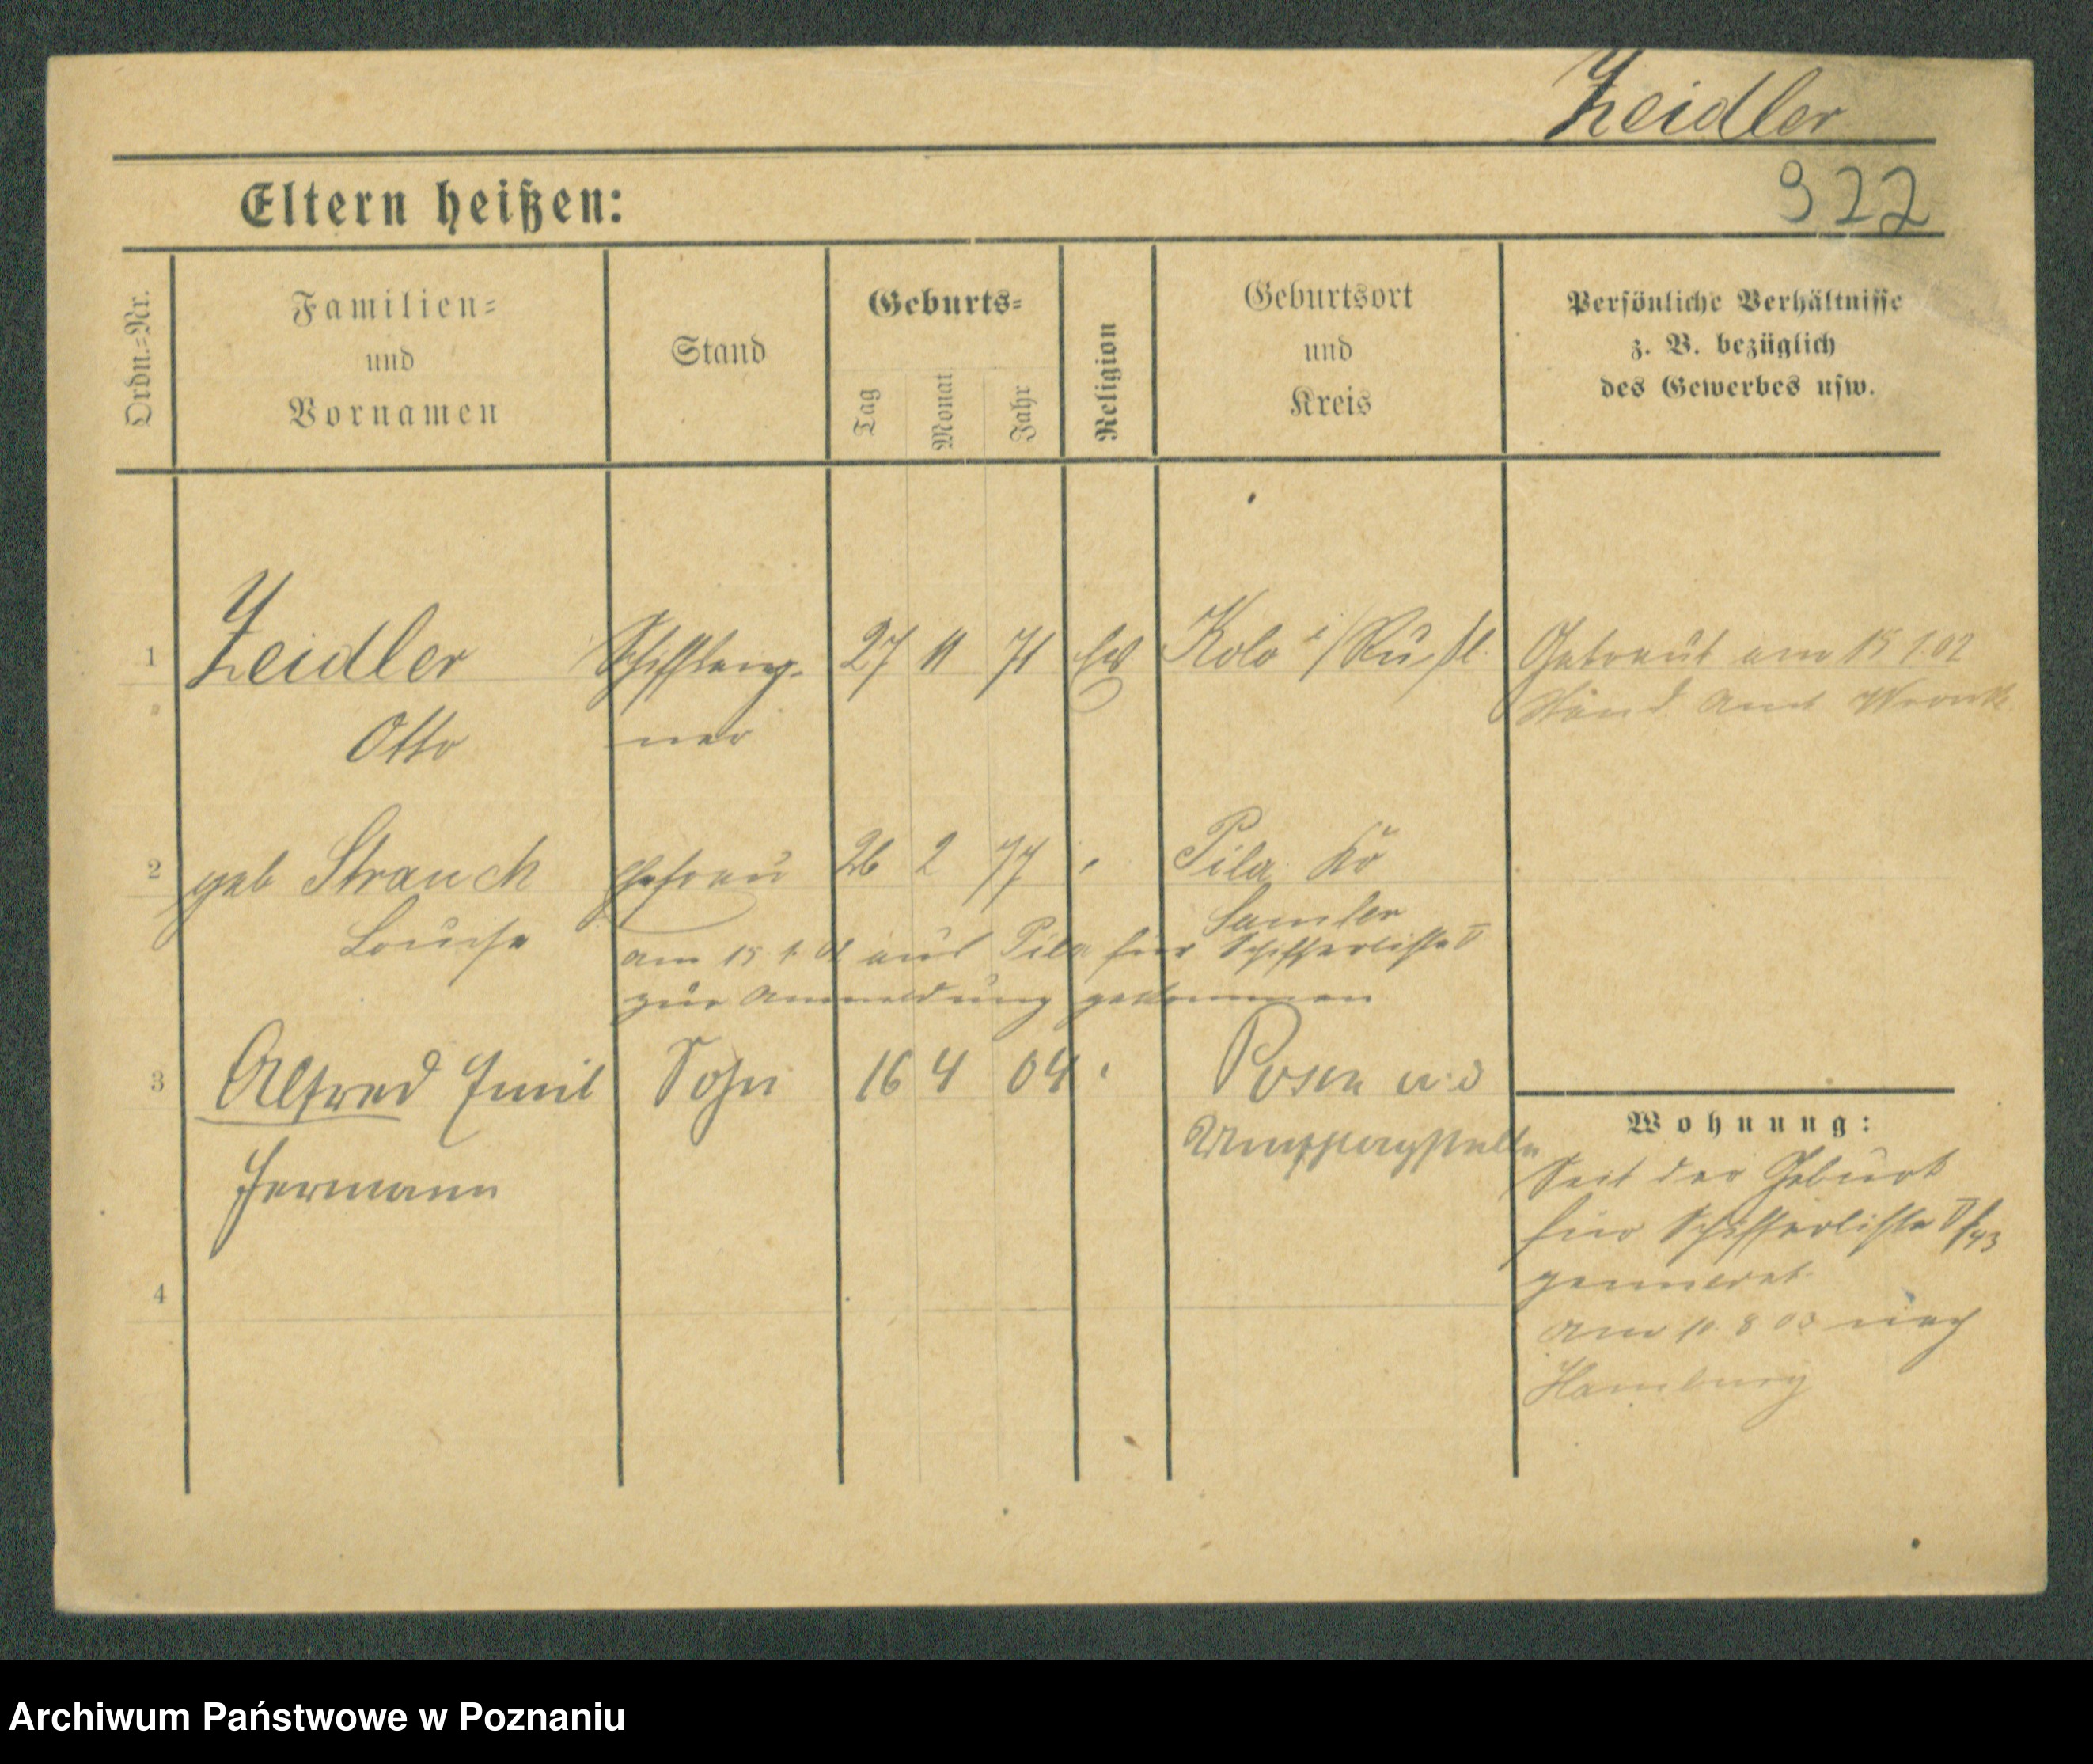 Zeidler
922
Eltern heißen:
Ordn.=Nr.
Familien=
und
Vornamen
Stand
Geburts=
Tag
Monat
Jahr
Religion
Geburtsort
und
Kreis
Persönliche Verhältnisse
z. B. bezüglich
des Gewerbes usw.
1 Zeidler 27 11 71 ev Kolo i/Rußl. Getraut am 15 1.02
Otto ner Stand. Amt Wronke
2 geb Strauch Ehefrau 26 2 77 " Pila Kr
Louise Samter
am 15 1 02 aus Pila hier Schifferliste V
zur Anmeldung gekommen
3 Alfred Emil Sohn 16 4 04 " Posen a.d
Hermann
4
Wohnung:
Seit der Geburt
hier Schifferliste V
gemeldet
am 10 8 03 nach
Hamburg
Archiwum Państwowe w Poznaniu